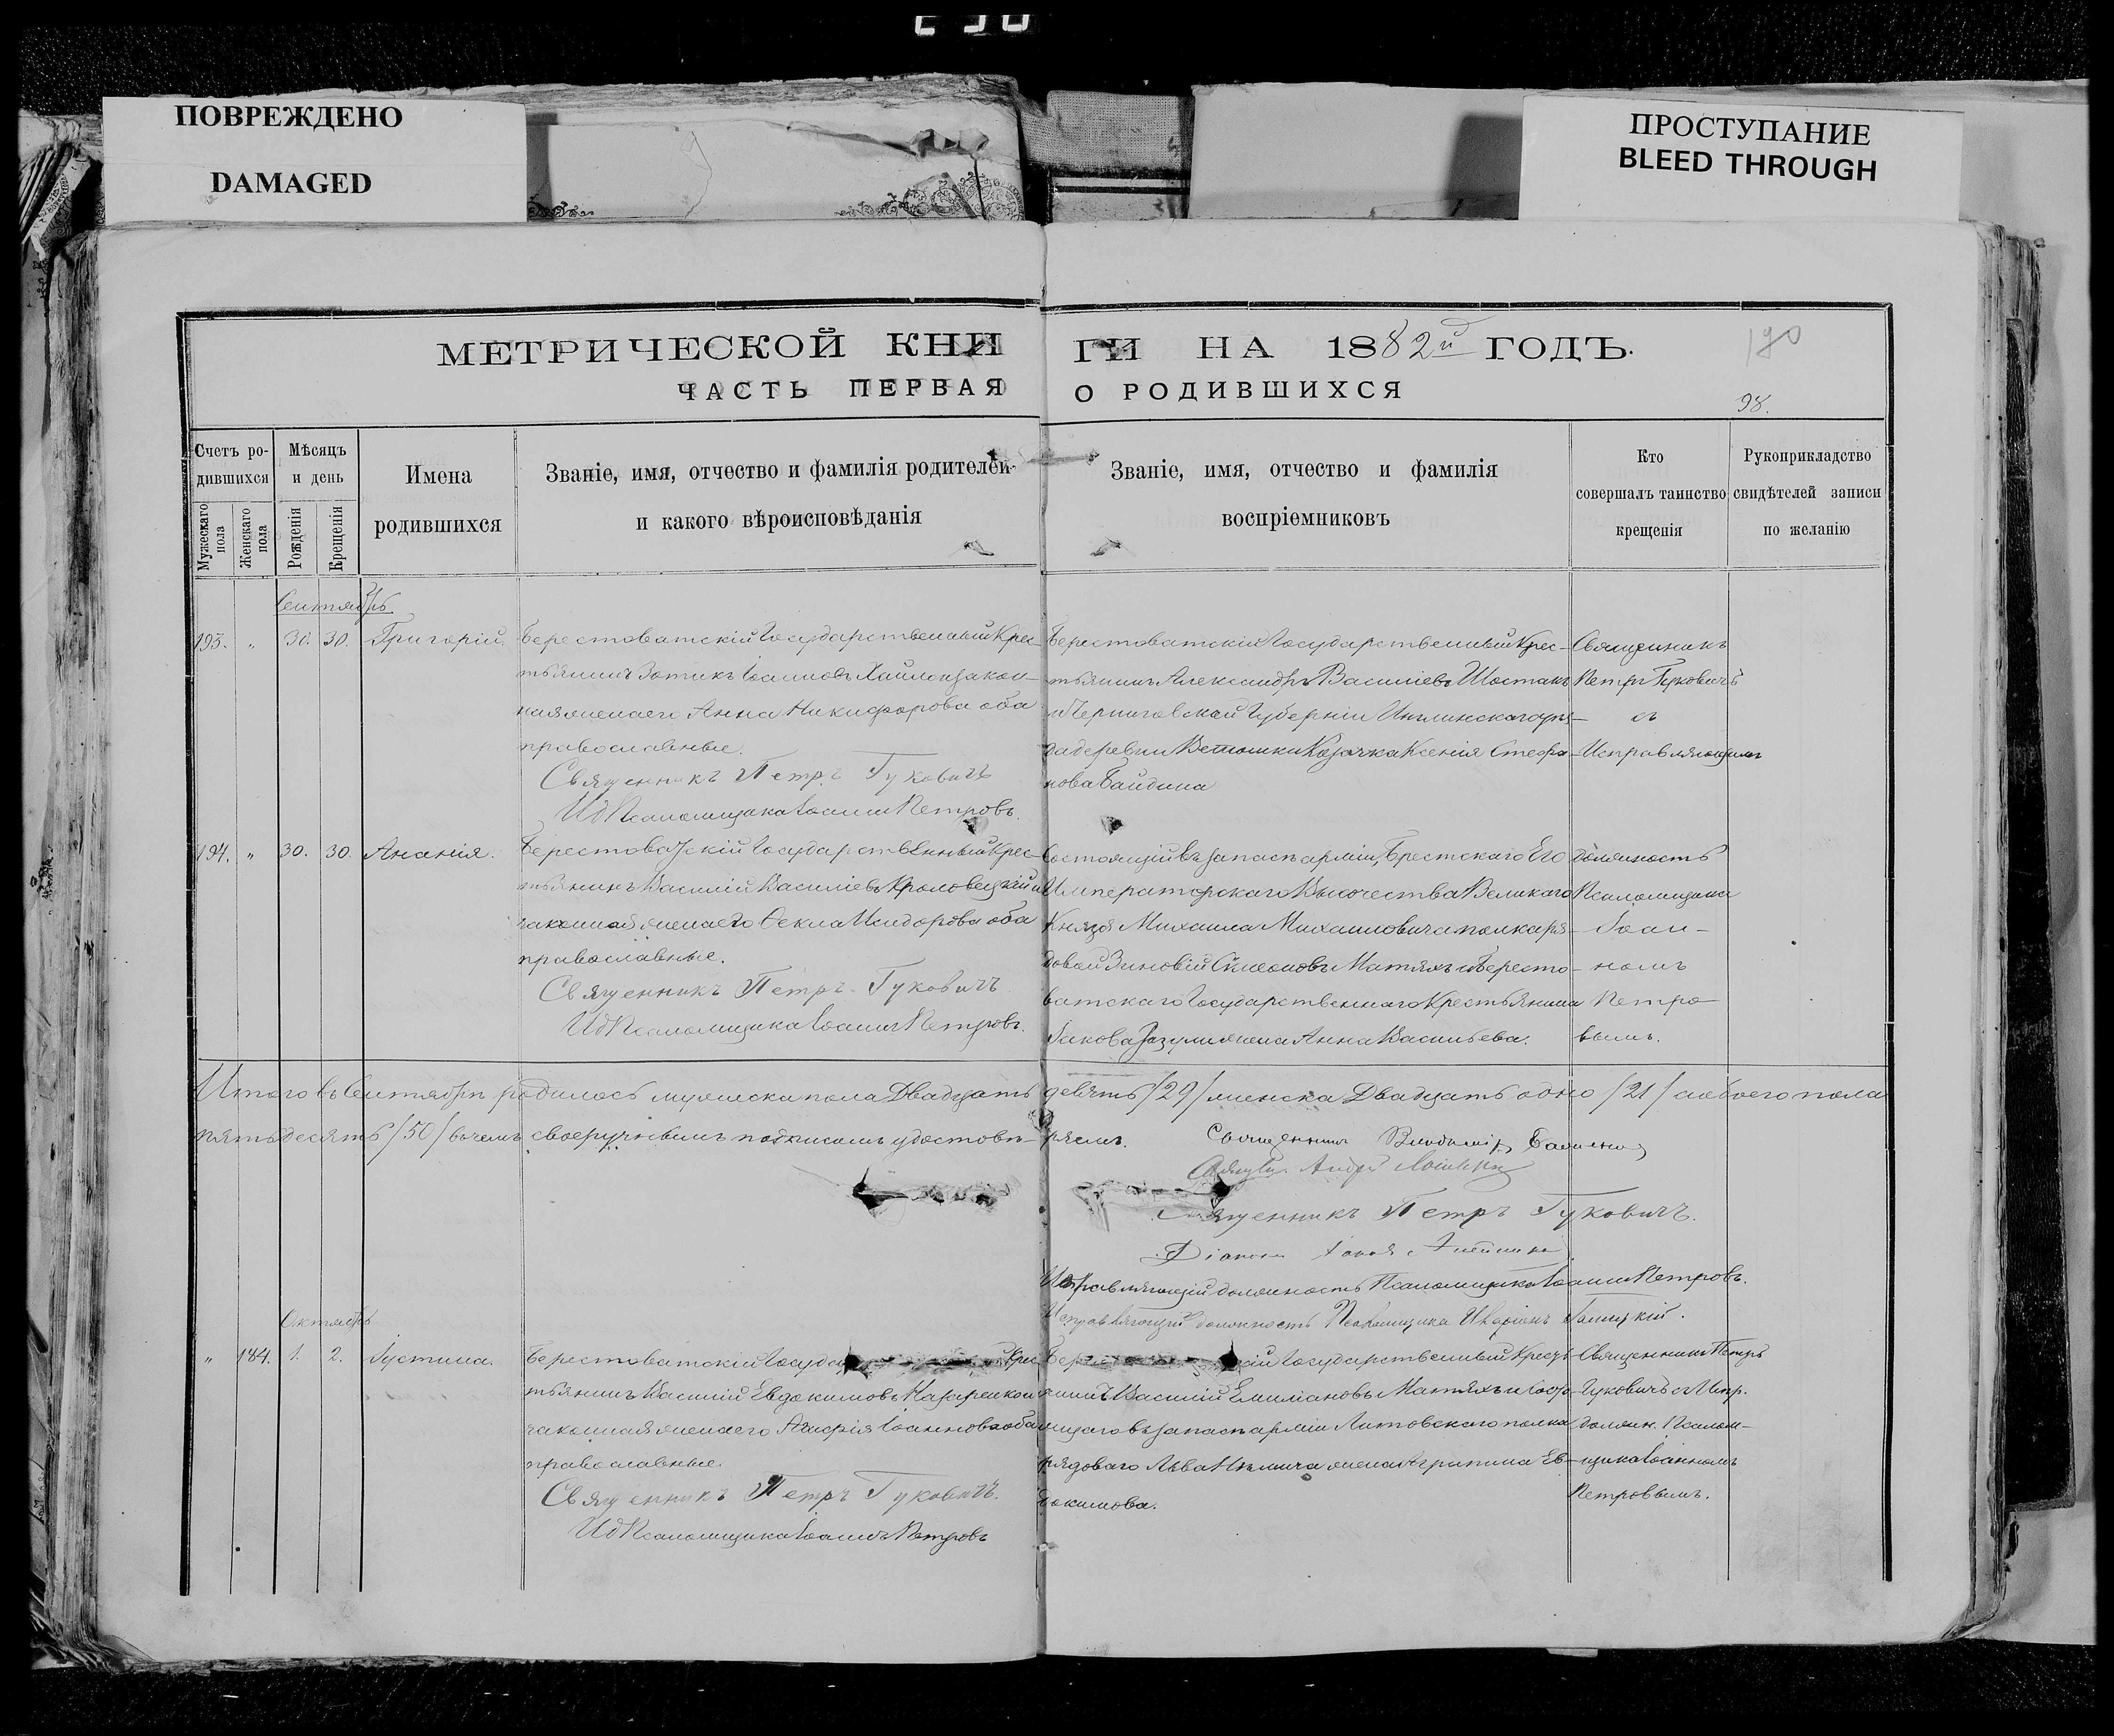 ПОВРЕЖДЕНО
DAMAGED
ПРОСТУПАНИЕ
BLEED THROUGH
МЕТРИЧЕСКОЙ КНИГИ НА 1882й ГОДЪ.
190
ЧАСТЬ ПЕРВАЯ О РОДИВШИХСЯ
98.
Счетъ ро-
дившихся
Мужескаго пола
Женскаго пола
Мѣсяцъ
и день
Рожденія
Крещенія
Имена
родившихся
Званіе, имя, отчество и фамилія родителей
и какого вѣроисповѣданія
Званіе, имя, отчество и фамилія
воспріемниковъ
Кто
совершалъ таинство
крещенія
Рукоприкладство
свидѣтелей записи
по желанію
Сентябрь
193. " 30. 30. Григорій.
Берестоватскій Государственный Крес-
тьянинъ Зотикъ Іоанновъ закон-
ная жена его Анна Никифорова оба
православные.
Священникъ Петръ Гуковичъ
ИД Псаломщика Іоаннъ Петровъ.
Берестоватскій Государственный Крес-
тьянинъ Александръ Василіевъ Шостакъ
и Черниговской Губерніи уѣз-
да деревни Козачка Ксенія Стефа-
нова Байдина
Священникъ
Петръ Гуковичъ
съ
Исправляющимъ
194. " 30. 30. Ананія.
Берестоватскій Государственный Крес-
тьянинъ Василій Василіевъ Кролевецкій и
законная жена его Ѳекла Исидорова оба
православные.
Священникъ Петръ Гуковичъ
ИД Псаломщика Іоаннъ Петровъ.
Состоящій въ запасѣ арміи, Брестскаго Его
Императорскаго Высочества Великаго
Князя Михаила Михаиловича полка ря-
довой Зиновій Матяхъ и Бересто-
ватскаго Государственнаго Крестьянина
Іакова жена Анна Васильева.
должность
Псаломщика
Іоан-
номъ
Петро
вымъ.
Итого въ Сентябрѣ родилось мужеска пола Двадцать девять /29/ женска Двадцать одно /21/ а обоего пола
пятьдесятъ /50/ въ чемъ своеручнымъ подписомъ удостовѣ-ряемъ. Священникъ Владиміръ
Андрей
Священникъ Петръ Гуковичъ.
Діаконъ
Исправляющій должность Псаломщика Іоаннъ Петровъ.
Исправляющій должность Псаломщика
Октябрь
" 184. 1. 2. Іустина.
Берестоватскій Госуда Крес
тьянинъ Василій Евдокимовъ Назаренко и
законная жена его Іоаннова оба
православные.
Священникъ Петръ Гуковичъ.
ИД Псаломщика Іоаннъ Петровъ
Бер ій Государственный Кресть-
янинъ Василій Емиліановъ Матяхъ и Состо-
ящаго въ запасѣ арміи Литовскаго полка
рядоваго Льва жена Агрипина Ев-
докимова.
Священникъ Петръ
Гуковичъ съ Испр.
должн. Псалом-
щика Іоанномъ
Петровымъ.